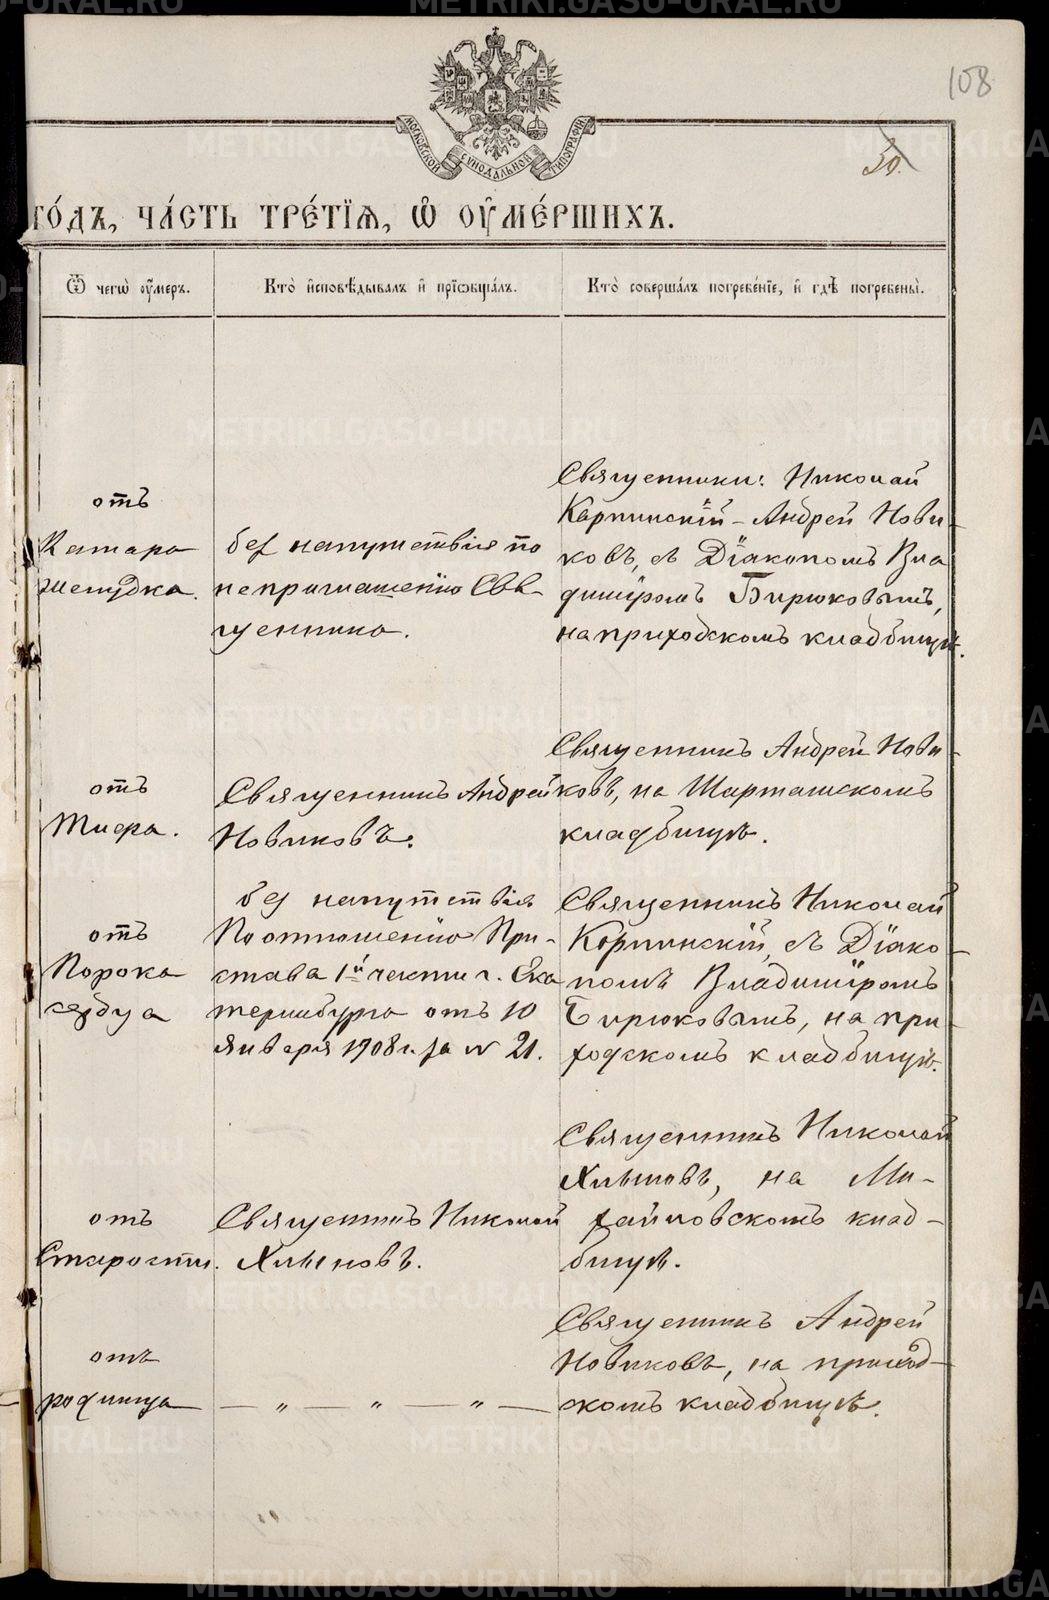 108
30.
МОСКОВСКОЙ СѴНОДАЛЬНОЙ ТИПОГРАФІИ
ГО́ДЪ, ЧА́СТЬ ТРЕ́ТІѦ, Ѡ҆ ОУ҆МЕ́РШИХЪ.
Ѿ чегѡ̀ оу҆́меръ.
Кто̀ и҆сповѣ́дывалъ и҆ прїѡбща́лъ.
Кто̀ соверша́лъ погребе́нїе, и҆ гдѣ̀ погребены̀.
отъ
Катара
желудка.
без напутствія по
неприглашенію Свя-
щенника.
Священники: Николай
Карпинскій - Андрей Нови-
ковъ, съ Діакономъ Вла
диміромъ Бирюковымъ,
на приходскомъ кладбищѣ.
отъ
Тифа.
Священникъ Андрей
Новиковъ.
Священникъ Андрей Нови-
ковъ, на Шарташскомъ
кладбищѣ.
отъ
Порока
сердца
без напутствія
По отношенію При-
става 1й части г. Ека
теринбурга отъ 10
января 1908 г. за № 21.
Священникъ Николай
Карпинскій, съ Діако-
помъ Владиміромъ
Бирюковымъ, на при-
ходскомъ кладбищѣ.
отъ
Старости.
Священникъ Николай
Хлыновъ.
Священникъ Николай
Хлыновъ, на Ми-
хайловскомъ клад-
бищѣ.
отъ
родимца
— „ — „ — „ —
Священникъ Андрей
Новиковъ, на приход-
скомъ кладбищѣ.
METRIKI.GASO-URAL.RU